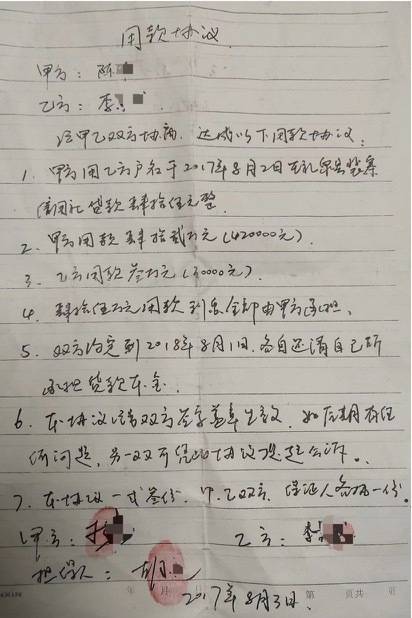 用款协议
甲方：陈
乙方：李
经甲乙双方协商，达成以下用款协议：
1、甲方用乙方户名于2017年8月2日在
信用社贷款肆拾伍万整
2、甲方用款肆拾贰万元（420000元）.
3、乙方用款叁万元（30000元）.
4、肆拾伍万元用款利息全部由甲方承担、
5、双方约定到2018年8月1日.各自还清自己所
承担贷款本金.
6、本协议经双方签字盖章生效，如后期有任
何问题，另一双可凭此协议提起公诉。
7、本协议一式叁份.甲、乙双方、保证人各执一份。
甲方：
乙方：李
担保人：
2017年8月3日、
年 月
第 页共